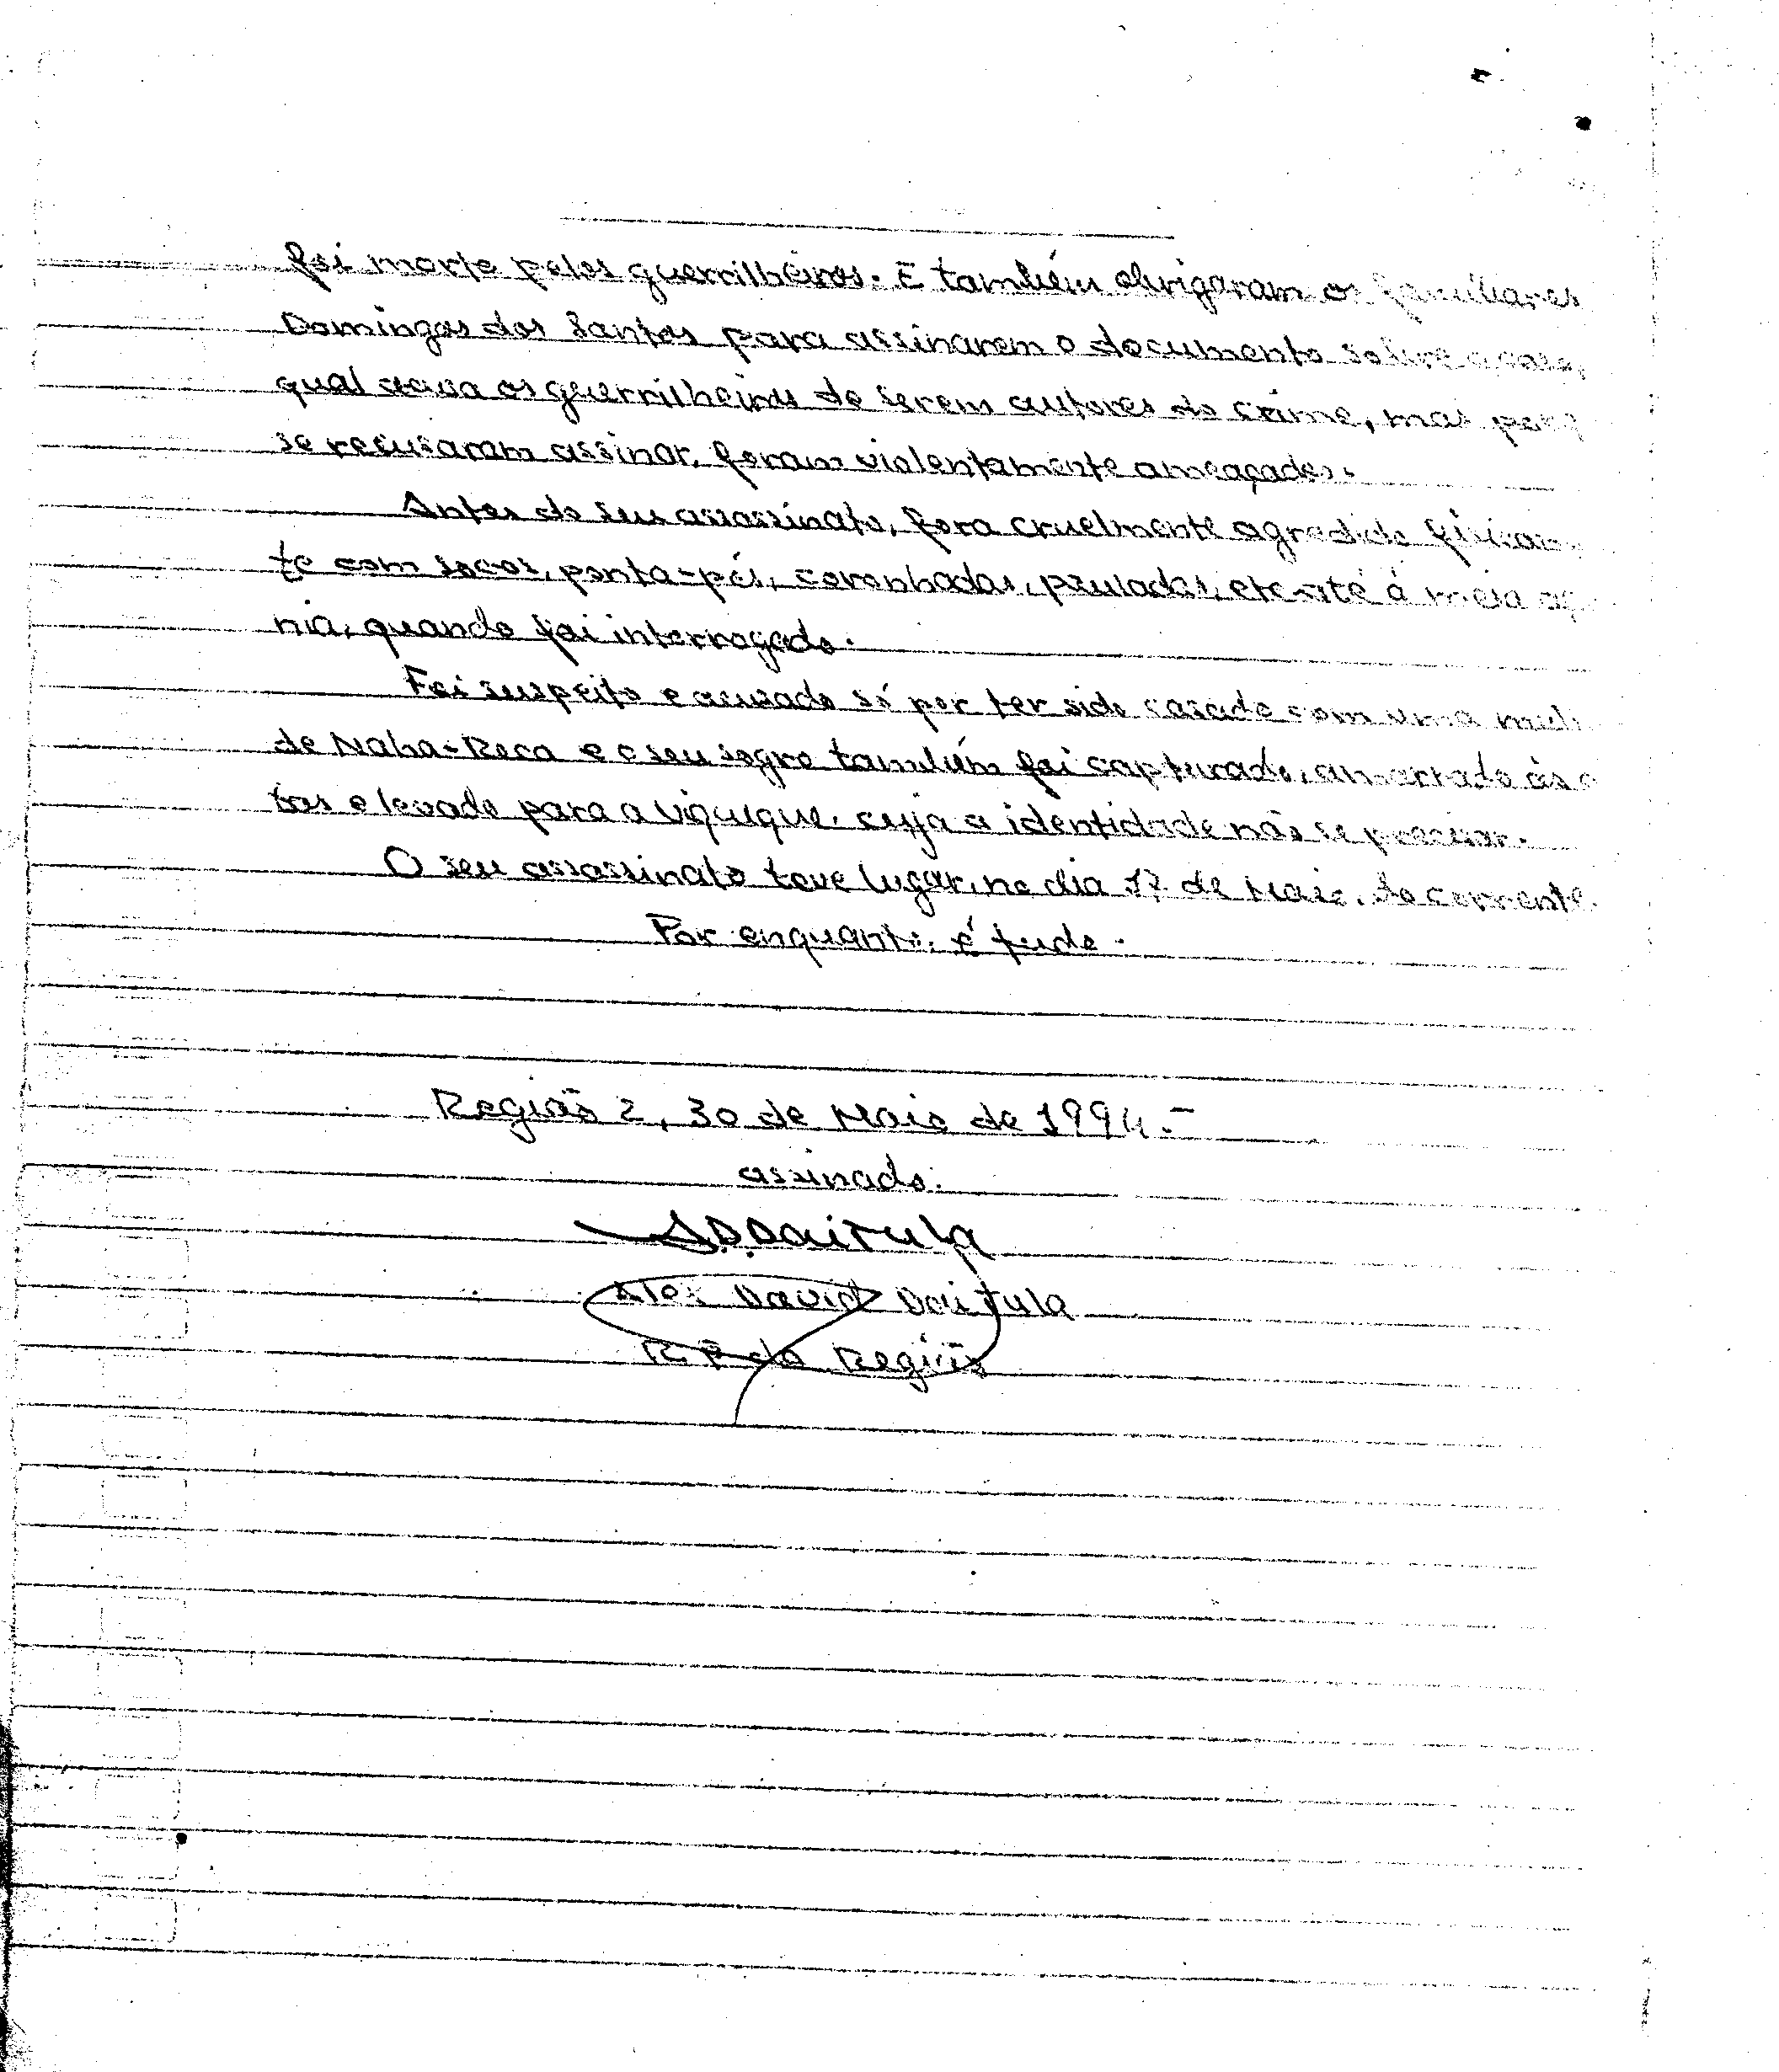 foi morto pelos guerrilheiros. E também obrigaram os familiares
Domingos dos Santos para assinarem o documento sobre o caso,
qual acusa os guerrilheiros de serem autores do crime, mas por
se recusaram assinar, foram violentamente ameaçados.
Antes do seu assassinato, fora cruelmente agredido
te com socos, ponta-pés, coronhadas, pauladas, etc até á meia
nia, quando foi interrogado.
Foi suspeito e acusado só por ter sido casado com uma
de Naha-Reca e o seu sogro também foi capturado, amarrado ás
tas e levado para a Viqueque, cuja a identidade não se precisar.
O seu assassinato teve lugar, no dia 17 de Maio, do corrente.
Por enquanto, é tudo.
Região 2, 30 de Maio de 1994.-
assinado:
A.D.Daitula
Alex David Daitula
R. P da Região